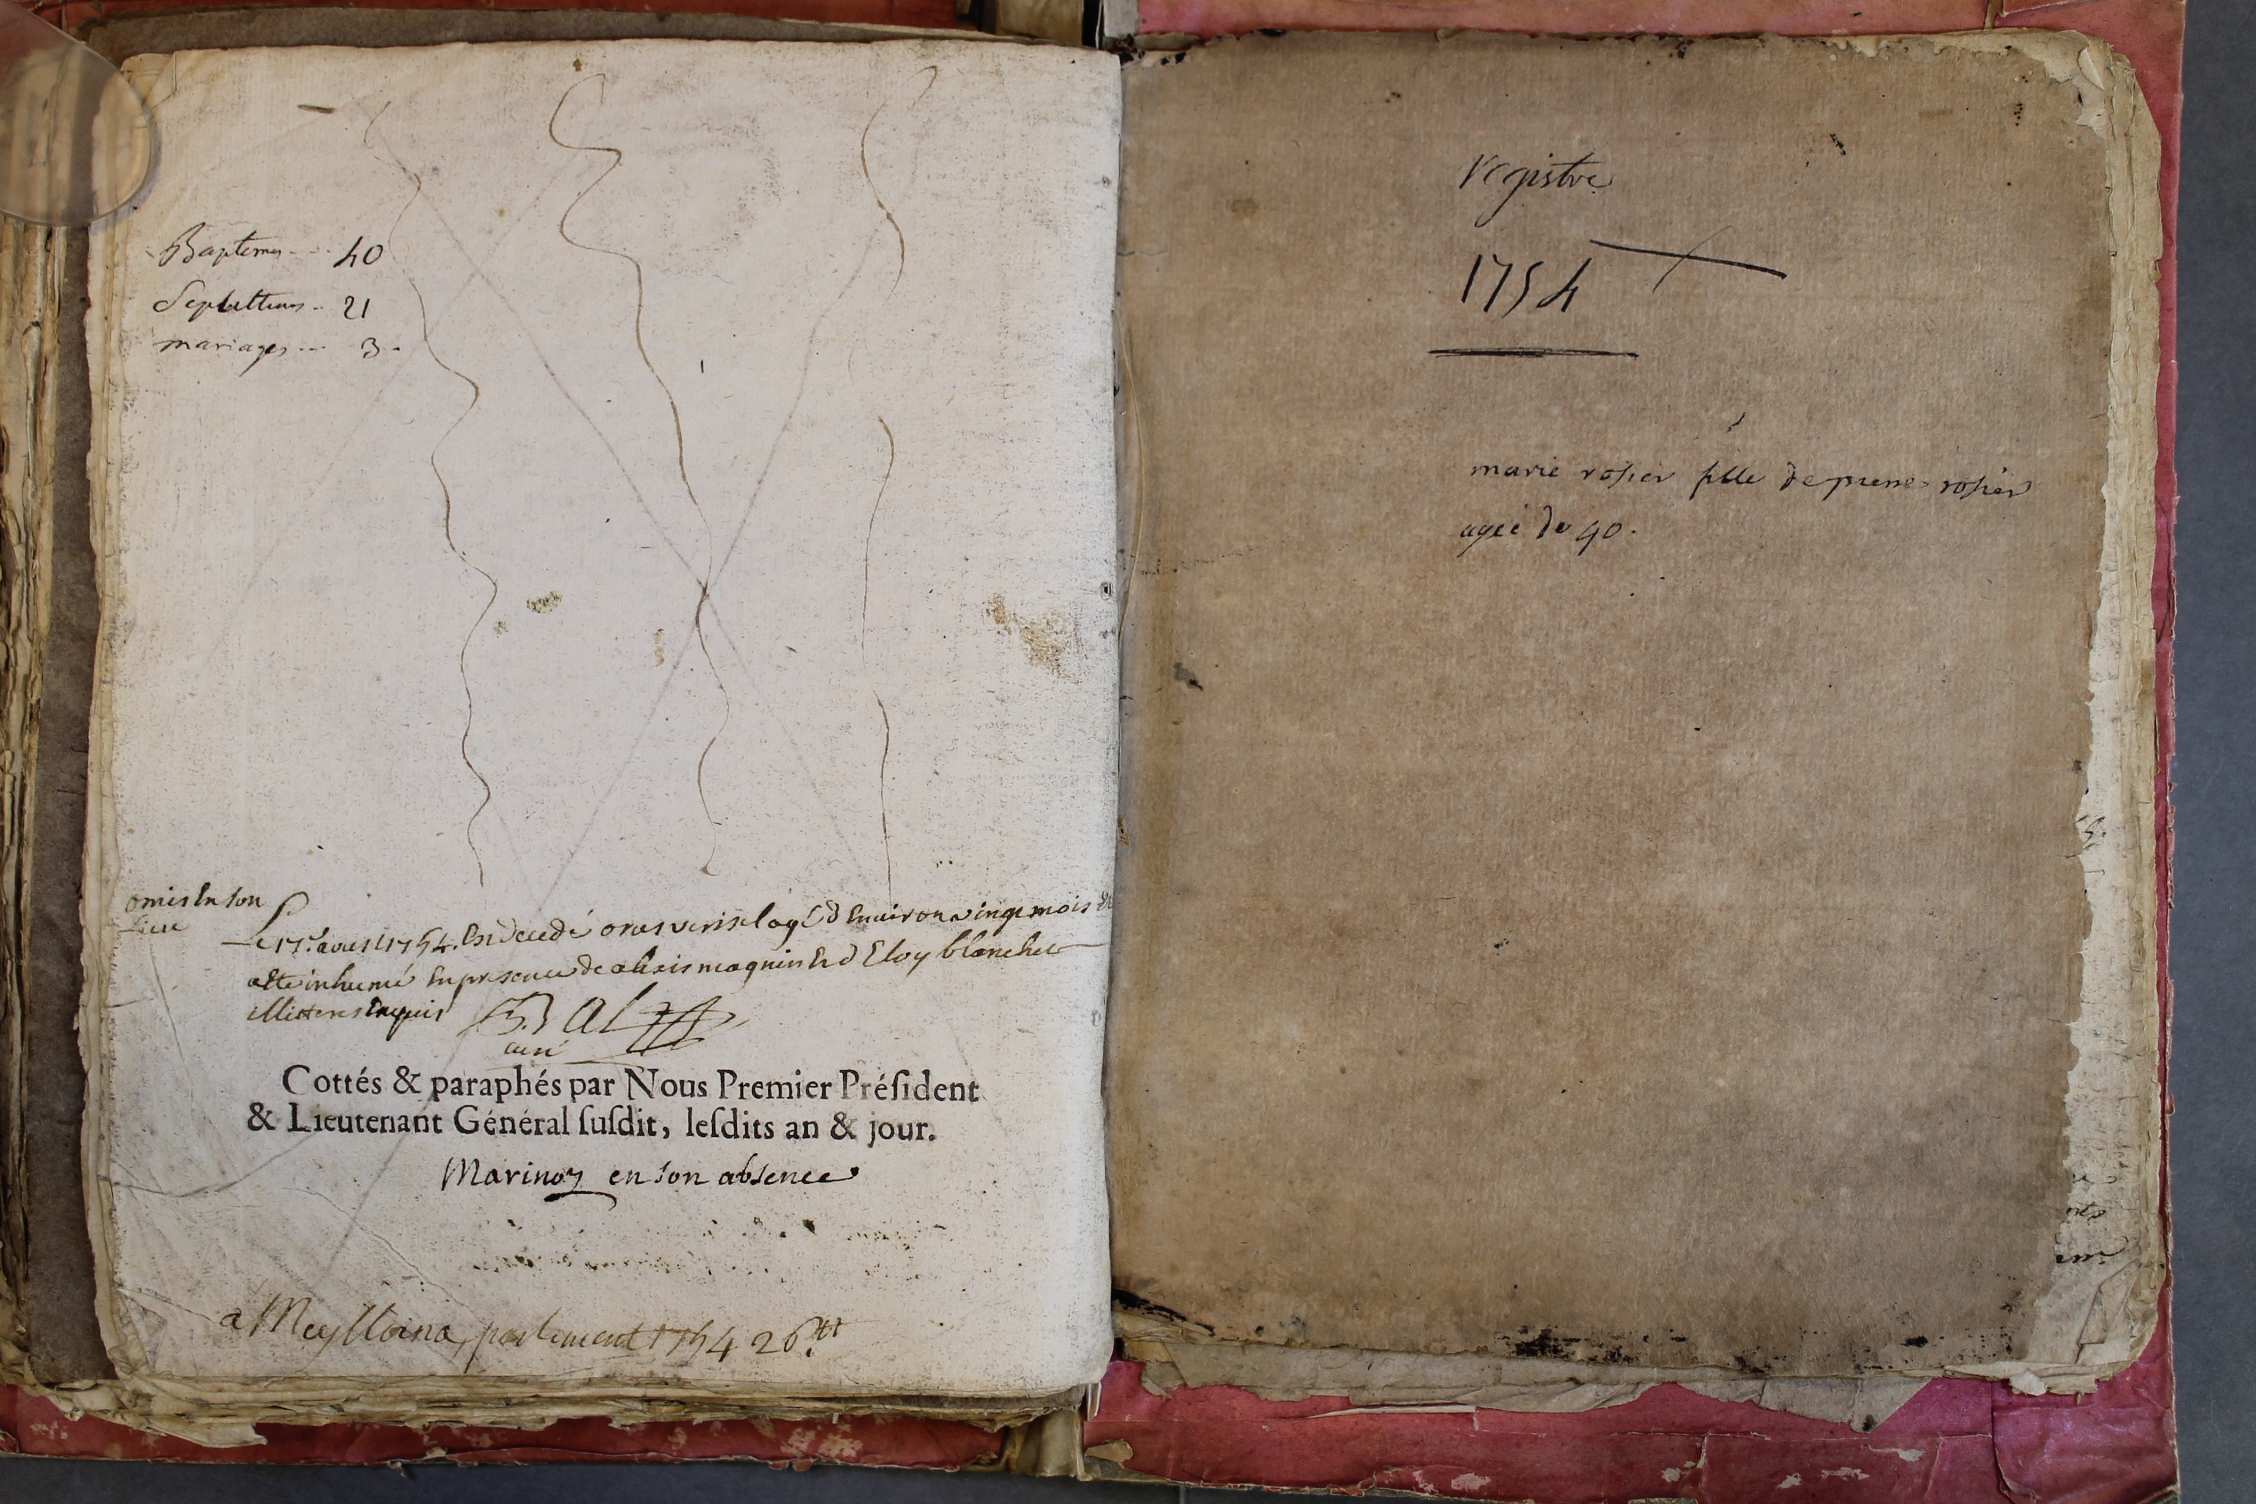 Baptemes --- 40
Sepultures - 21
mariages --- 3 -
omis en son
lieu
Le 17e. avril 1754. Est decedé agé d'environ vingt mois
a Ete inhumé En presence de alexis maquin Et d'Eloy blanchet
illiteres Enquis
curé
Cottés & paraphés par Nous Premier Préſident
& Lieutenant Général ſuſdit, leſdits an & jour.
Marinoz en son absence
a 1754 26tt
registre
1754
marie rosier fille de pierre rosier
ageé de 40.